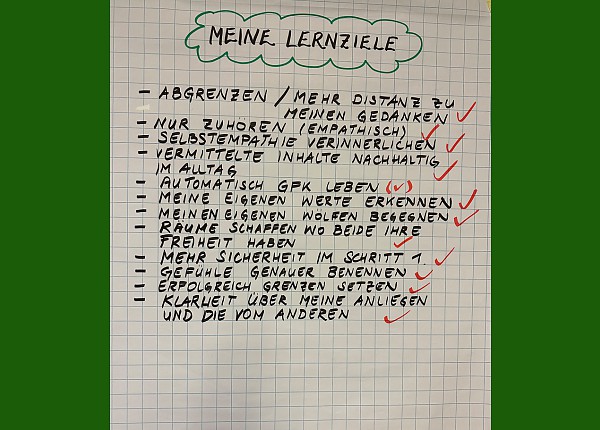 MEINE LERNZIELE
- ABGRENZEN / MEHR DISTANZ ZU
MEINEN GEDANKEN ✓
- NUR ZUHÖREN (EMPATHISCH) ✓
- SELBSTEMPATHIE VERINNERLICHEN ✓
- VERMITTELTE INHALTE NACHHALTIG
IM ALLTAG ✓
- AUTOMATISCH GFK LEBEN (✓)
- MEINE EIGENEN WERTE ERKENNEN ✓
- MEINEN EIGENEN WÖLFEN BEGEGNEN ✓
- RÄUME SCHAFFEN WO BEIDE IHRE
FREIHEIT HABEN ✓
- MEHR SICHERHEIT IM SCHRITT 1. ✓
- GEFÜHLE GENAUER BENENNEN ✓
- ERFOLGREICH GRENZEN SETZEN ✓
- KLARHEIT ÜBER MEINE ANLIEGEN
UND DIE VOM ANDEREN ✓